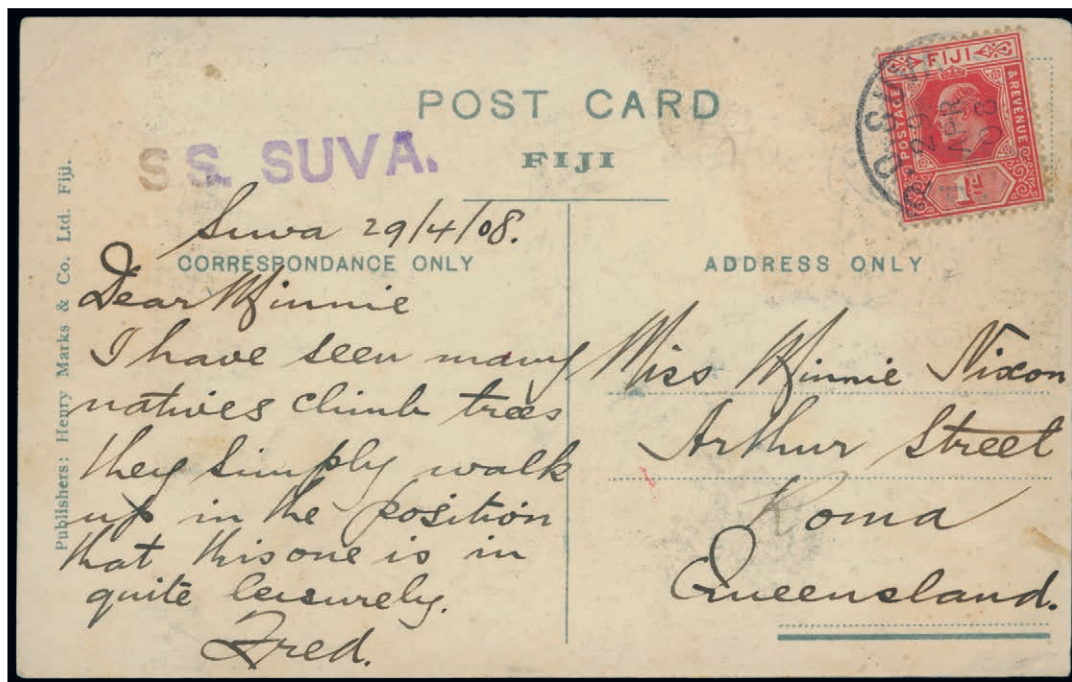 POST CARD
FIJI
S S. SUVA.
FIJI
POSTAGE
& REVENUE
1D
G.P.O. SUVA
29
APR
08
Publishers: Henry Marks & Co. Ltd. Fiji.
CORRESPONDANCE ONLY
Suva 29/4/08.
Dear Minnie
I have seen many
natives climb trees
they simply walk
up in the position
that this one is in
quite leisurely.
Fred.
ADDRESS ONLY
Miss Minnie Nixon
Arthur Street
Roma
Queensland.